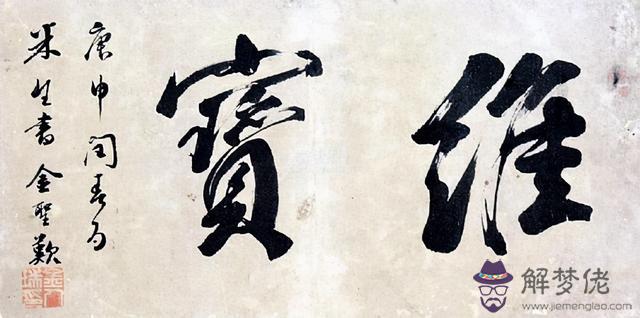 維寶
庚申閏春為
生書金聖歎
金人瑞印
解梦佬
www.jiemenglao.com